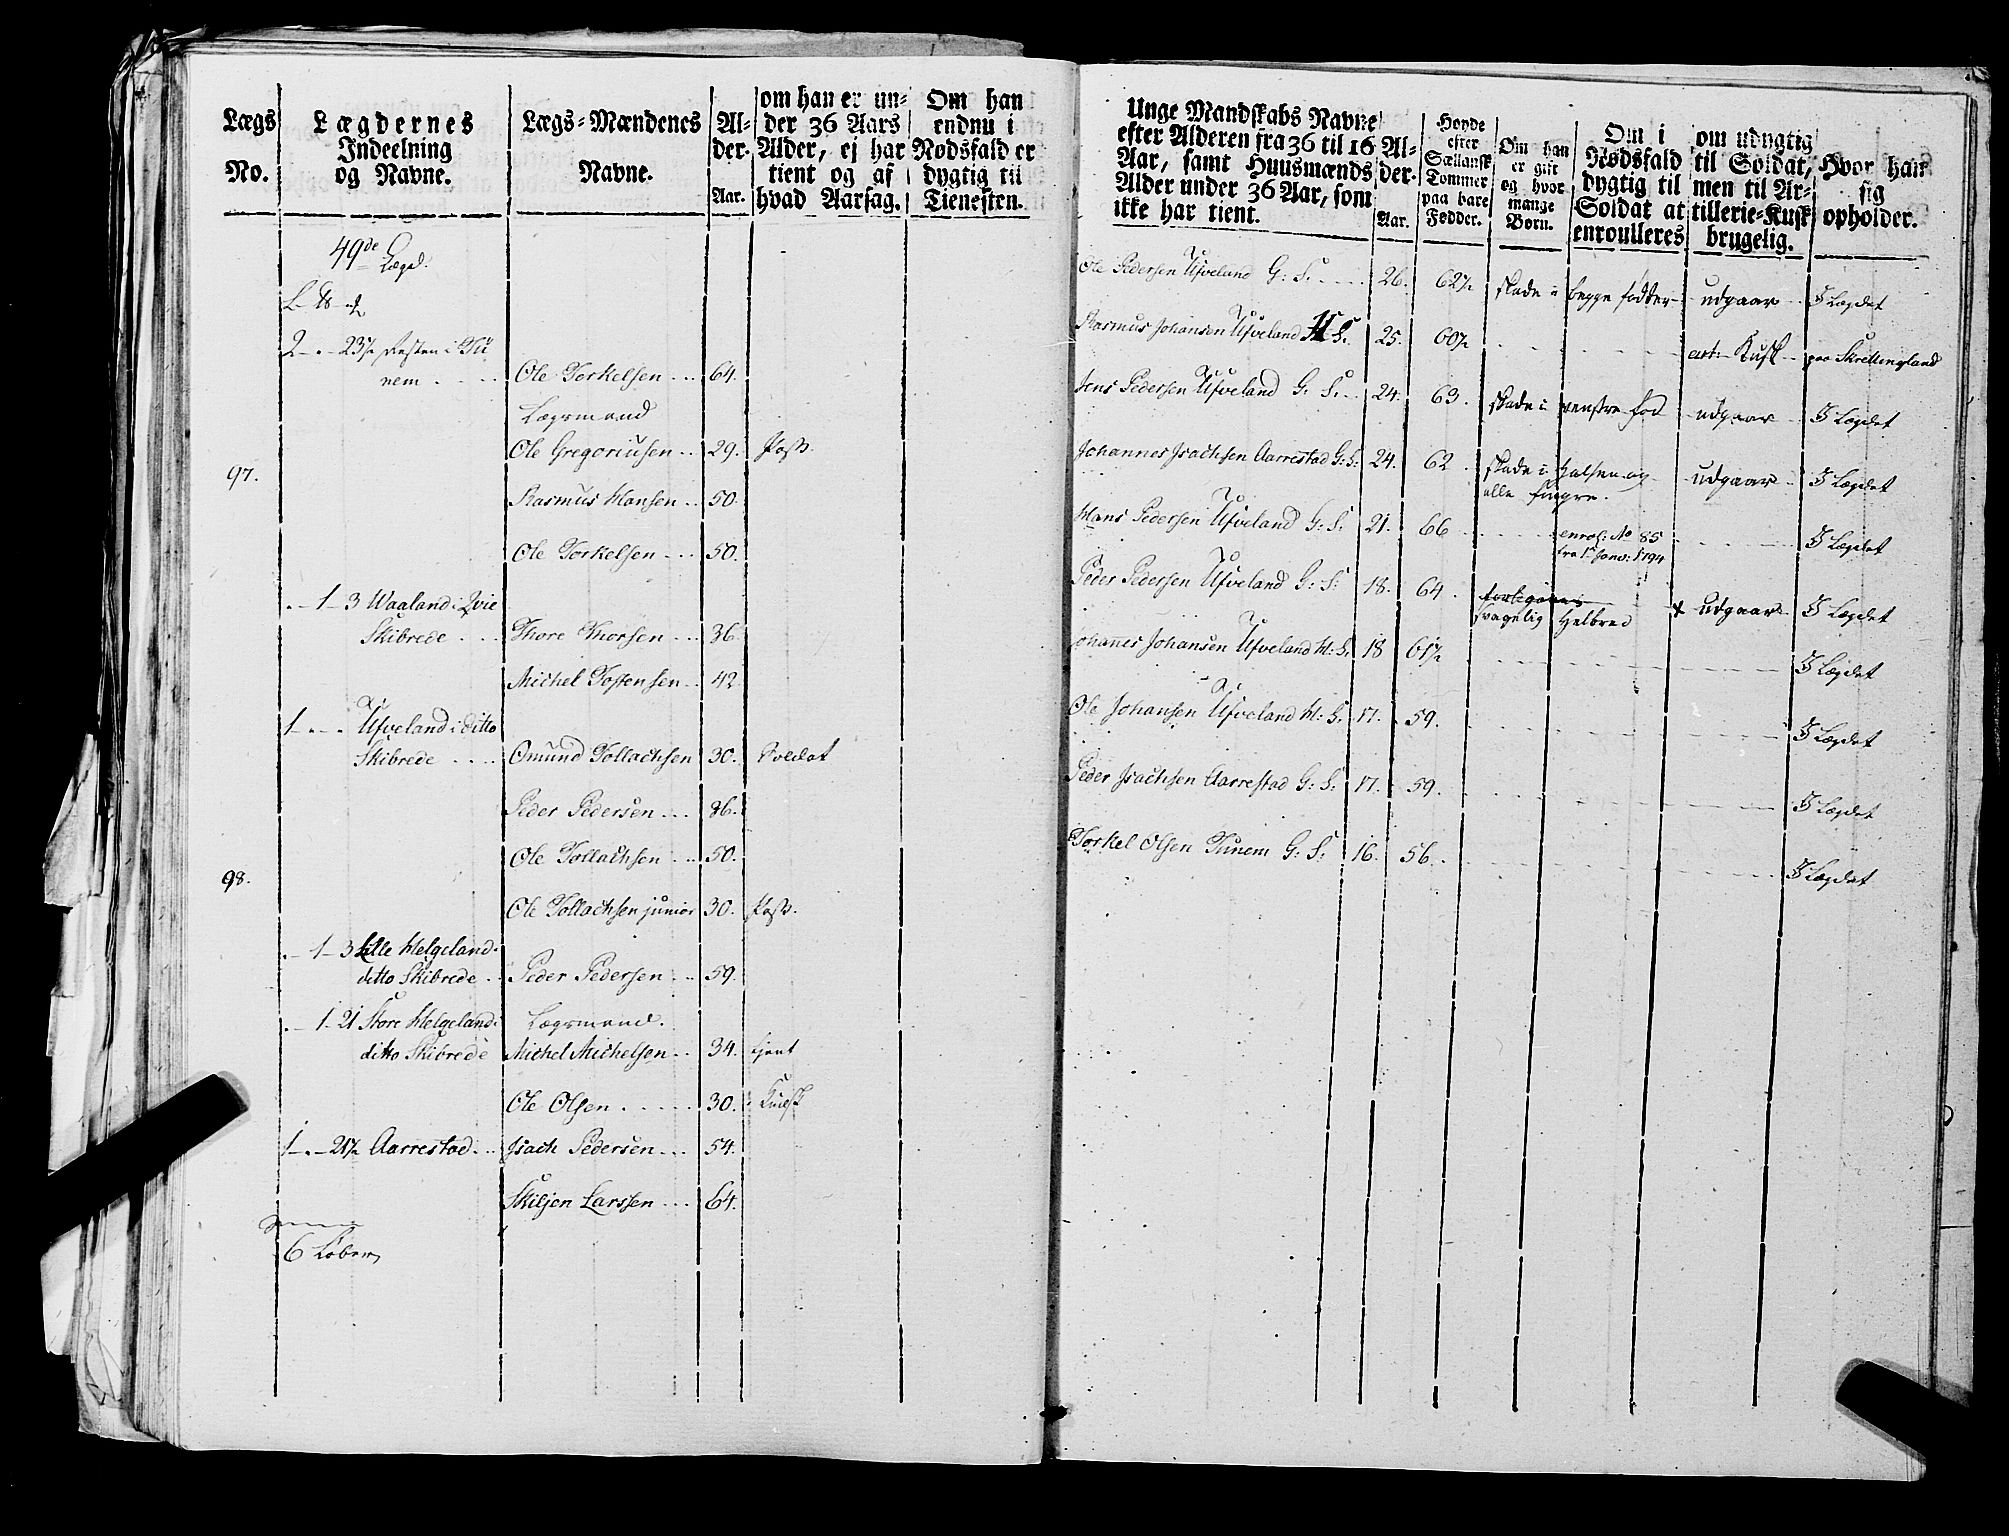 Lægs No.
Lægdernes Indeelning og Navne.
Lægs-Mændenes Navne.
Al-der. Aar.
om han er un-der 36 Aars Alder, ej har tient og af hvad Aarsag.
Om han endnu i Nødsfald er dygtig til Tienesten.
49de Lægd.
2 - . - 23½ Resten i Tu
nem . . . . Ole Torkelsen . . . 64.
Lægsmand
97. Ole Gregoriusen . . 29. Pass.
Rasmus Hansen . . 50.
Ole Torkelsen . . . 50.
. - 1 - 3 Waaland i Qvie
Skibrede . . . Thore Thorsen . . . 36.
Michel Tostensen . . 42
1 - . - . Ufveland i ditto
Skibrede . . . . Omund Tollachsen 30. Soldat
Peder Pedersen . . . 36.
98. Ole Tollachsen . . . 50.
Ole Tollachsen junior 30. Pass.
. - 1 - 3 Lille Helgeland i
ditto Skibrede . . Peder Pedersen . . 59.
. - 1 - 21 Store Helgeland i Lægsmand.
ditto Skibrede Michel Michelsen . . 34. tjent
Ole Olsen . . . . . 30. Kudsk
1 - . - 21½ Aarrestad . . Isach Pedersen . . . 54.
Skiljen Larssen . . . 64.
6 Løber
Unge Mandskabs Navne efter Alderen fra 36 til 16 Aar, samt Huusmænds Alder under 36 Aar, som ikke har tient.
Al-der. Aar.
Høyde efter Sællansk Tommer paa bare Fødder.
Om han er gift og hvor mange Børn.
Om i Nødsfald dygtig til Soldat at enroulleres
om udygtig til Soldat, men til Ar-tillerie-Kusk brugelig.
Hvor han sig opholder.
Ole Pedersen Ufveland G: S: . . . . 26. 62½ skade i begge fødder udgaar I Lægdet
Rasmus Johansen Ufveland H S. 25. 60½ . . . art: Kusk paa Skretingland
Jens Pedersen Ufveland G. S. . . 24. 63. skade i venstre fod udgaar I Lægdet
Johannes Isachsen Aarrestad G: S: 24. 62 . skade i halsen og udgaar I Lægdet
alle fingre.
Hans Pedersen Ufveland G: S: 21. 66 . . . . enrol: No 85 I Lægdet
fra 1 Janv: 1794
Peder Pedersen Ufveland G: S: 18. 64 . udgaar I Lægdet
svagelig Helbred
Johannes Johansen Ufveland H: S. 18 61½ I Lægdet
Ole Johansen Ufveland H: S. 17. 59. I Lægdet
Peder Isachsen Aarrestad G: S: 17. 59. I Lægdet
Torkel Olsen Tunem G: S: 16. 56. I Lægdet